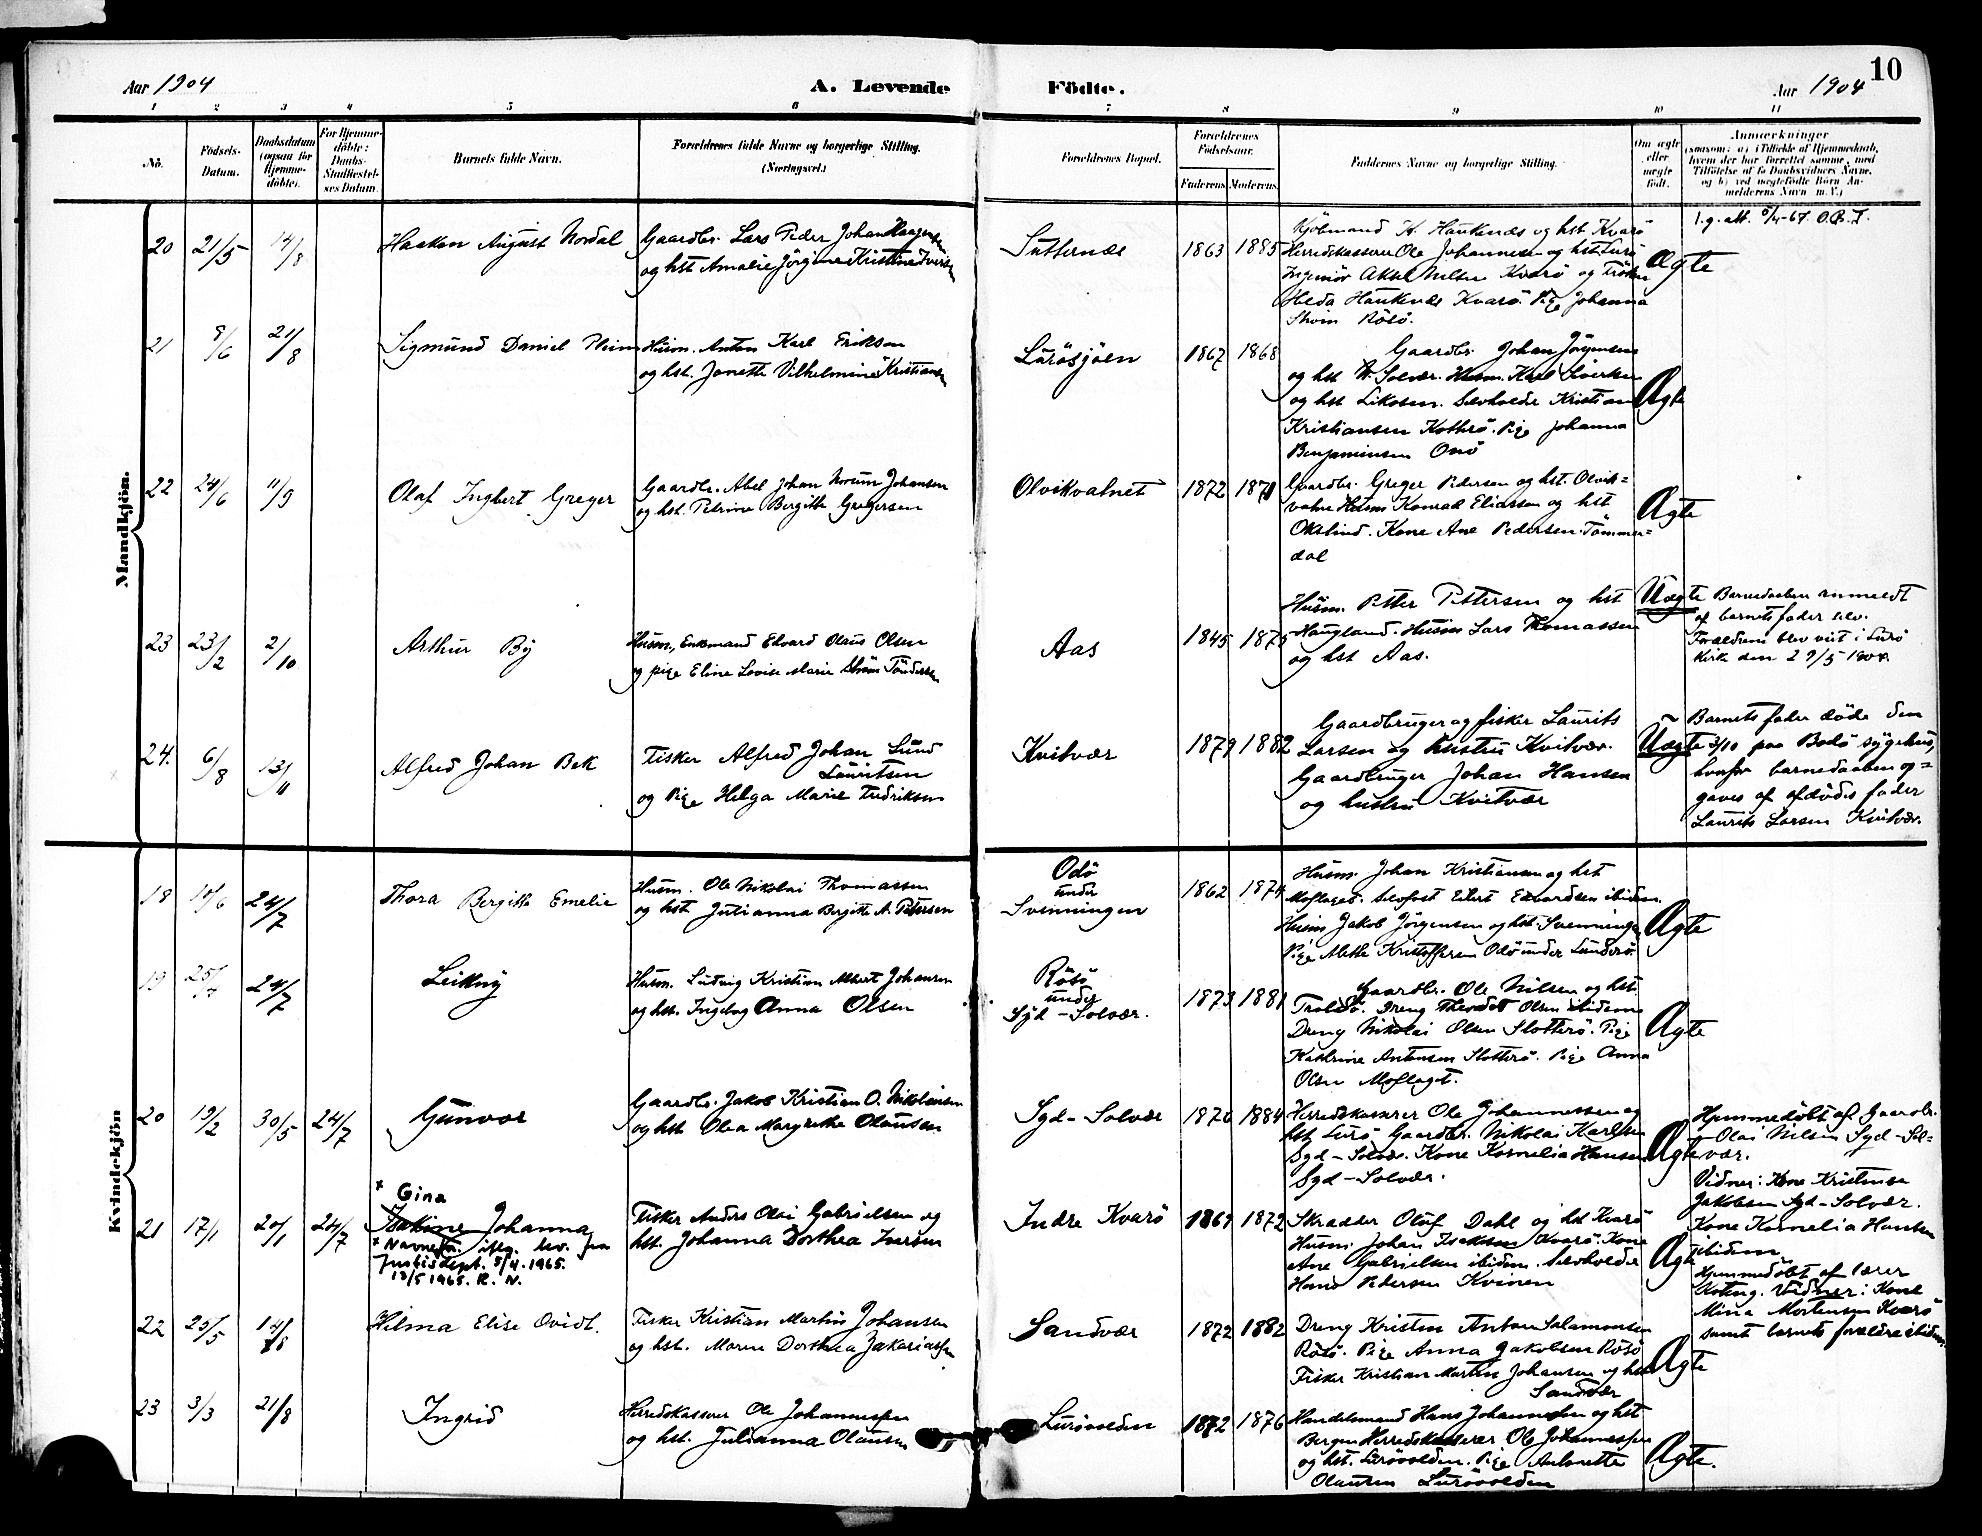 Aar 1904
A. Levende
Födte.
Aar 1904
10
1 2 3 4 5 6 7 8 9 10 11
No.
Födsels-
Datum.
Daabsdatum
(ogsaa for
Hjemme-
döbte).
For Hjemme-
döbte:
Daabs-
Stadfæstel-
ses Datum.
Barnets fulde Navn.
Forældrenes fulde Navne og borgerlige Stilling.
(Næringsvei.)
Forældrenes Bopæl.
Forældrenes
Födselsaar.
Faderens. Moderens.
Faddernes Navne og borgerlige Stilling.
Om ægte
eller
uægte
födt.
Anmærkninger
(saasom: a) i Tilfælde af Hjemmedaab,
hvem der har forrettet samme, med
Tilföielse af to Daabsvidners Navne,
og b) ved uægtefödte Börn An-
melderens Navn m. V.)
Mandkjön.
20 21/5 14/8 Haakon August Nordal
Gaardbr. Lars Peder Johan Haagensen
og hst Amalie Jörgine Kristine Iversen
Sutternæs 1863 1885
Kjöbmand H. Haukenæs og hst Kvarö
Herredskasserer Ole Johannesen og hst Lurö
Ingeniör Aksel Nilsen Kvarö og Fröken
Heda Haukenæs Kvarö. Pige Johanna
Strøm Rösö.
Ægte
21 8/6 21/8 Sigmund Daniel Thim
Husm. Anton Karl Erikson
og hst. Jonette Vilhelmine Kristiansen
Lurösjöen 1867 1868
Gaardbr. Johan Jörgensen
og hst N. Solvær. Husm. Karl Sivertsen
og hst Liksosen. Selvholdr Kristian
Kristiansen Kothrö. Pige Johanna
Benjaminsen Onö
Ægte
22 24/6 11/9 Olaf Ingbert Greger
Gaardbr. Abel Johan Norum Johansen
og hst. Petrine Bergitte Gregersen
Olvikvatnet 1872 1871
Gaardbr. Greger Pedersen og hst. Olvik-
vatne Husm Konrad Eliassen og hst
Okstind. Kone Ane Pedersen Tömmer-
dal
Ægte
23 23/2 2/10 Arthur By
Husm, Enkmand Edvard Olaus Olsen
og pige Eline Lovise Marie Ström Töndersen
Aas 1845 1875
Husm. Petter Pettersen og hst
Haugland. Husm Lars Thomassen
og hst Aas.
Uægte
Barnedaaben anmeldt
af barnets fader selv.
Forældrene blev viet i Lurö
Kirke den 29/5 1904.
24. 6/8 13/11 Alfred Johan Bek
Fisker Alfred Johan Lund
Lauritsen
og Pige Helga Marie Fredriksen
Kvitvær 1879 1882
Gaardbruger og fisker Laurits
Larsen og hustru Kvitvær.
Gaardbruger Johan Hansen
og hustru Kvitvær
Uægte
Barnets fader döde den
3/10 paa Bodö sygehus,
hvorfor barnedaaben op-
gaves af afdödes fader
Laurits Larsen Kvitvær.
Kvindekjön
18 10/6 24/7 Thora Bergitte Emelie
Husm. Ole Nikolai Thomassen
og hst. Julianna Bergitte A. Petersen
Odö
under
Svenningen 1862 1874
Husm. Johan Kristiansen og hst
Moflaget. Selvfost Eilert Edvardsen ibidem.
Husm Jakob Jörgensen og hst. Svenningen
Pige Mette Kristoffersen Odö under Lunderö.
Ægte
19 25/7 24/7 Leikny
Husm. Ludvig Kristian Albert Johansen
og hst. Ingebog Anna Olsen
Rösö
under
Syd-Solvær. 1873 1881
Gaardbr. Ole Nilsen og hst.
Troldö. Dreng Theodet Olsen ibidem
Dreng Nikolai Olsen Slotterö. Pige
Kathrine Antonsen Slotterö. Pige Anna
Olsen Moflaget.
Ægte
20 19/2 30/5 24/7 Gunvor
Gaardbr. Jakob Kristian O. Nikolaisen
og hst. Olea Margrethe Olausen
Syd-Solvær 1870 1884
Herredskasserer Ole Johannessen og
hst Lurö Gaardbr. Nikolai Karlsen
Syd-Solvær. Kone Kornelia Hansen
Syd-Solvær.
Ægte
Hjemmedöbt af Gaardbr.
Olai Nilsen Syd-Sol-
vær.
Vidner: Kone Kristense
Jakobsen Syd-Solvær.
Kone Kornelia Hansen
ibidem.
21 17/1 20/1 24/7
x Gina
Isakine Johanna
x Navneen. iflg. bev. fra
Justisdept. 5/4.1965.
13/5 1965. R. N.
Fisker Anders Olai Gabrielsen og
hst. Johanna Dorthea Iversen
Indre Kvarö 1869 1872
Skrædder Oluf Dahl og hst Kvarö
Husm. Johan Isaksen Kvarö. Kone
Ane Gabrielsen ibidem. Selvholder
Hans Pedersen Kvinen
Ægte
Hjemmedöbt af Lærer
Aoting. Vidner: Kone
Mina Mortensen Kvarö
samt barnets forældre ibidem.
22 25/5 14/8 Hilma Elise Ovidt.
Fisker Kristian Martin Johansen
og hst. Maren Dorthea Zakariassen
Sandvær 1872 1882
Dreng Kristen Antore Salamonsen
Rösö. Pige Anna Jakobsen Rösö
Fisker Kristian Martin Johansen og hst
Sandvær
Ægte
23 3/3 21/8 Ingrid
Herredskasserer Ole Johannessen
og hst. Julianna Olausen
Lurövolden 1872 1876
Handelsmand Hans Johannessen og hst
Bergen Herredskasserer Ole Johannessen
og hst. Lurövolden. Pige Antonette
Olausen Lurövolden
Ægte.